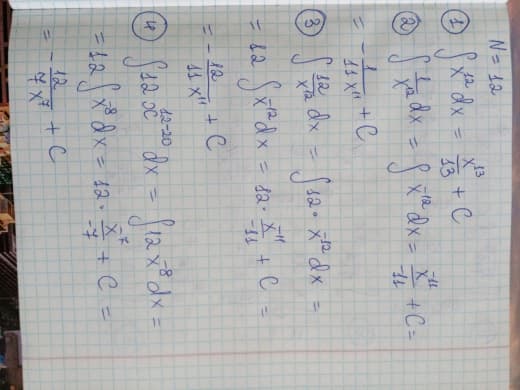 N = 12
① ∫ x¹² dx = x¹³/13 + C
② ∫ 1/x¹² dx = ∫ x⁻¹² dx = x⁻¹¹/-11 + C =
= - 1/11x¹¹ + C
③ ∫ 12/x¹² dx = ∫ 12 · x⁻¹² dx =
= 12 ∫ x⁻¹² dx = 12 · x⁻¹¹/-11 + C =
= - 12/11x¹¹ + C
④ ∫ 12x¹²⁻²⁰ dx = ∫ 12x⁻⁸ dx =
= 12 ∫ x⁻⁸ dx = 12 · x⁻⁷/-7 + C =
= - 12/7x⁷ + C